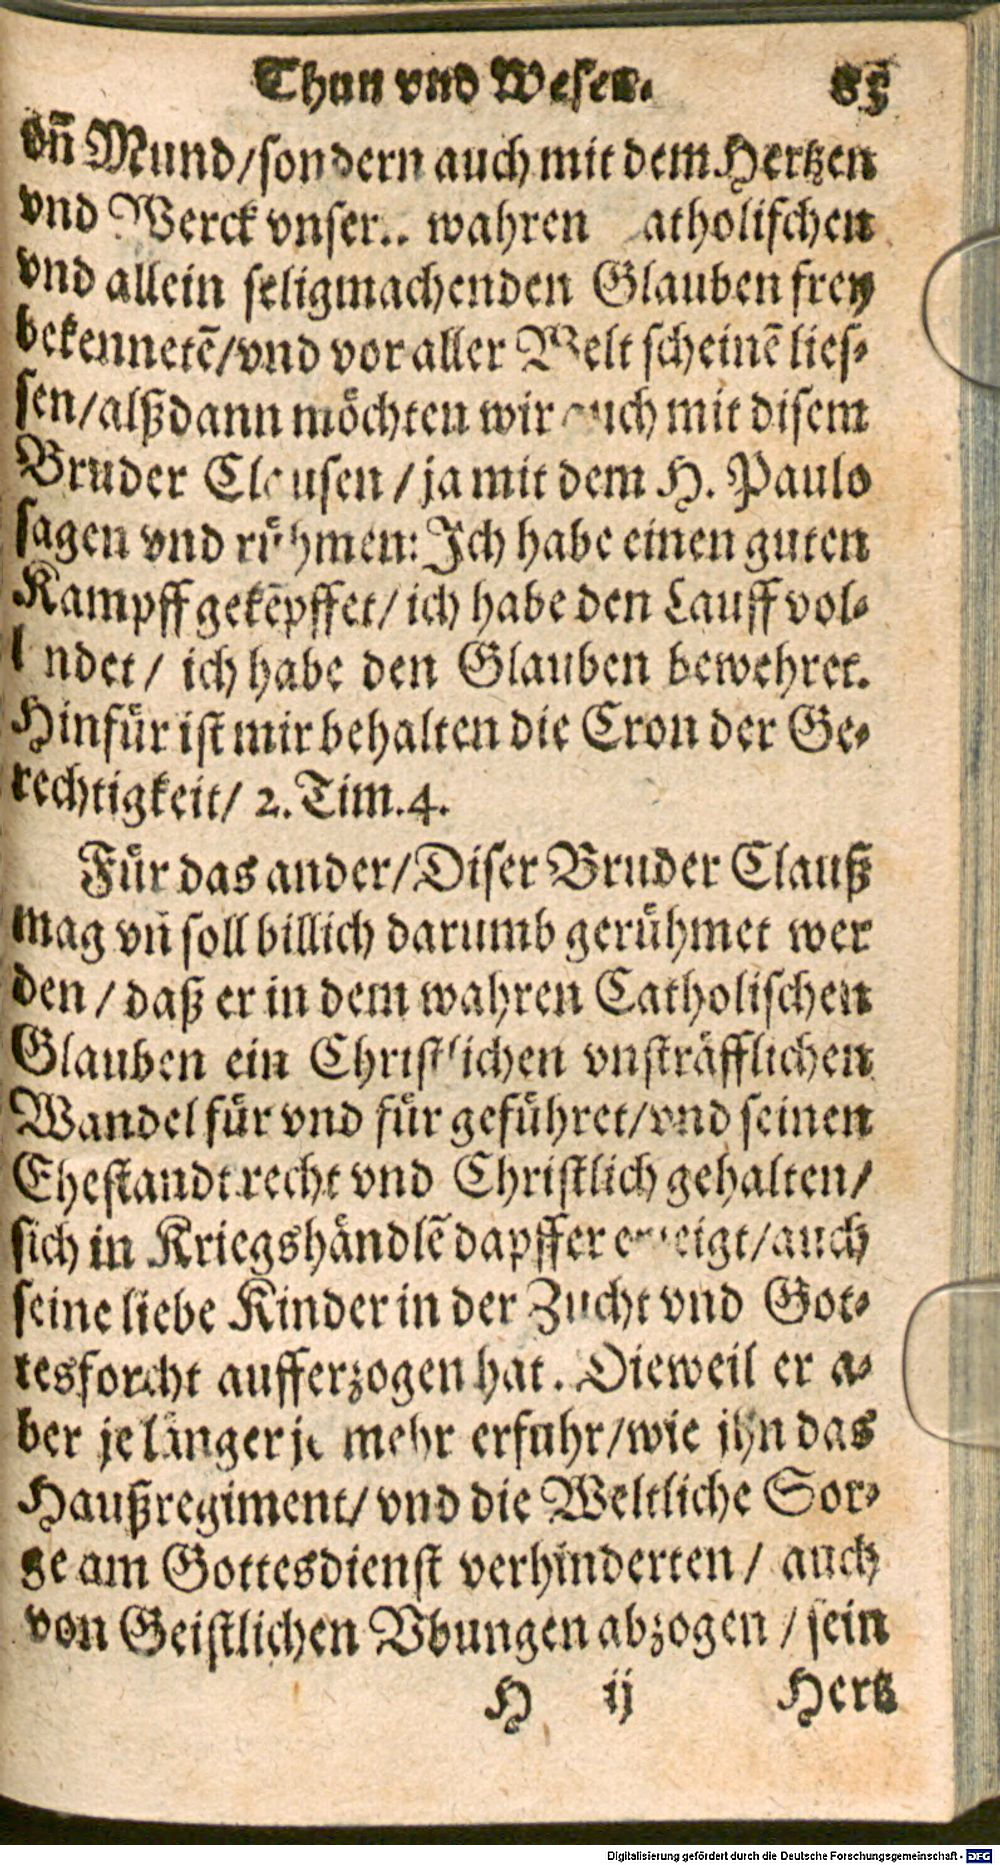 Thun vnd Wesen. 83
vn̄ Mund/sondern auch mit dem Hertzen
vnd Werck vnser.. wahren atholischen
vnd allein seligmachenden Glauben frey
bekennetē/vnd vor aller Welt scheinē lies⸗
sen/alß dann möchten wir auch mit disem
Bruder Clausen / ja mit dem H. Paulo
sagen vnd rühmen: Ich habe einen guten
Kampff gekēpffet/ ich habe den Lauff vol⸗
l ndet / ich habe den Glauben bewehret.
Hinfür ist mir behalten die Cron der Ge⸗
rechtigkeit/ 2. Tim. 4.
Für das ander/Diser Bruder Clauß
mag vn̄ soll billich darumb gerühmet wer
den / daß er in dem wahren Catholischen
Glauben ein Christlichen vnsträfflichen
Wandel für vnd für geführet/vnd seinen
Ehestandt recht vnd Christlich gehalten/
sich in Kriegshändlē dapffer erzeigt/auch
seine liebe Kinder in der Zucht vnd Got⸗
tesforcht aufferzogen hat. Dieweil er a⸗
ber je länger je mehr erfuhr/wie jhn das
Haußregiment/ vnd die Weltliche Sor⸗
ge am Gottesdienst verhinderten / auch
von Geistlichen Vbungen abzogen / sein
H ij Hertz
Digitalisierung gefördert durch die Deutsche Forschungsgemeinschaft - DFG